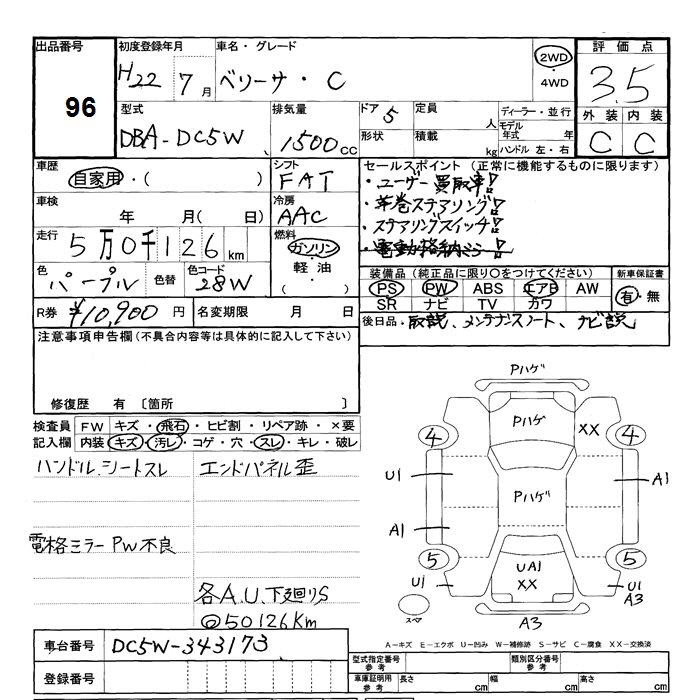 出品番号 初度登録年月 車名・グレード 評価点
96 H22 7月 ベリーサ・C 2WD・4WD 3.5
型式 排気量 ドア 5 定員 人 ディーラー・並行 外装 内装
DBA-DC5W 1500cc 形状 積載 kg モデル年式 年 ハンドル 左・右 C C
車歴 シフト セールスポイント (正常に機能するものに限ります)
自家用・( ) FAT ・ユーザー買取車!
車検 冷房 ・革巻ステアリング!
年 月( 日) AAC ・ステアリングスイッチ!
走行 燃料 ・電動格納ミラー!
5万0千126km ガソリン・軽油・( )
色 色替 色コード 装備品 (純正品に限り○をつけてください) 新車保証書
パープル 28W PS PW ABS エアB AW 有・無
SR ナビ TV カワ
R券 ¥10,900円 名変期限 月 日 後日品・取説、メンテナンスノート、ナビ説
注意事項申告欄(不具合内容等は具体的に記入して下さい)
修復歴 有 〔箇所 〕
検査員 FW キズ・飛石・ヒビ割・リペア跡・×要
記入欄 内装 キズ・汚レ・コゲ・穴・スレ・キレ・破レ
ハンドル、シートスレ エンドパネル歪
電格ミラーPW不良
各A.U.下廻りS
@50126Km
Pハゲ
Pハゲ
4 XX 4
U1 Pハゲ A1
A1
5 UA1 5
XX
U1 U1
A3
スペア A3
A-キズ E-エクボ U-凹み W-補修跡 S-サビ C-腐食 XX-交換済
車台番号 DC5W-343173 型式指定番号 参考 類別区分番号 参考
登録番号 車庫証明用 参考 長さ cm 幅 cm 高さ cm